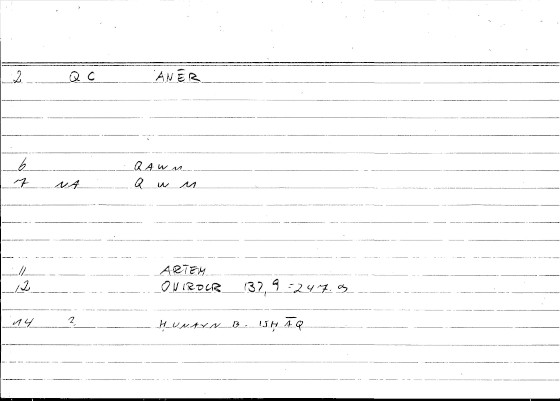 2 QC ANĒR
6 QAWM
7 NA QWM
11 ARTEM
12 137,9 = 247.9
14 ? HUNAYN B. ISHĀQ